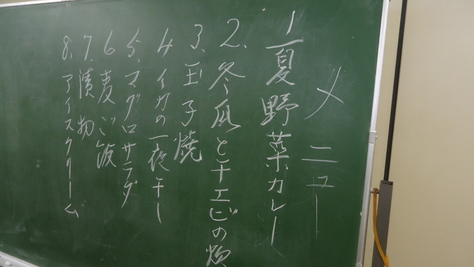 メニュー
1. 夏野菜カレー
2. 冬瓜とエビの
3. 玉子焼
4. イカの一夜干し
5. マグロサラダ
6. 麦ご飯
7. 漬物
8. アイスクリーム